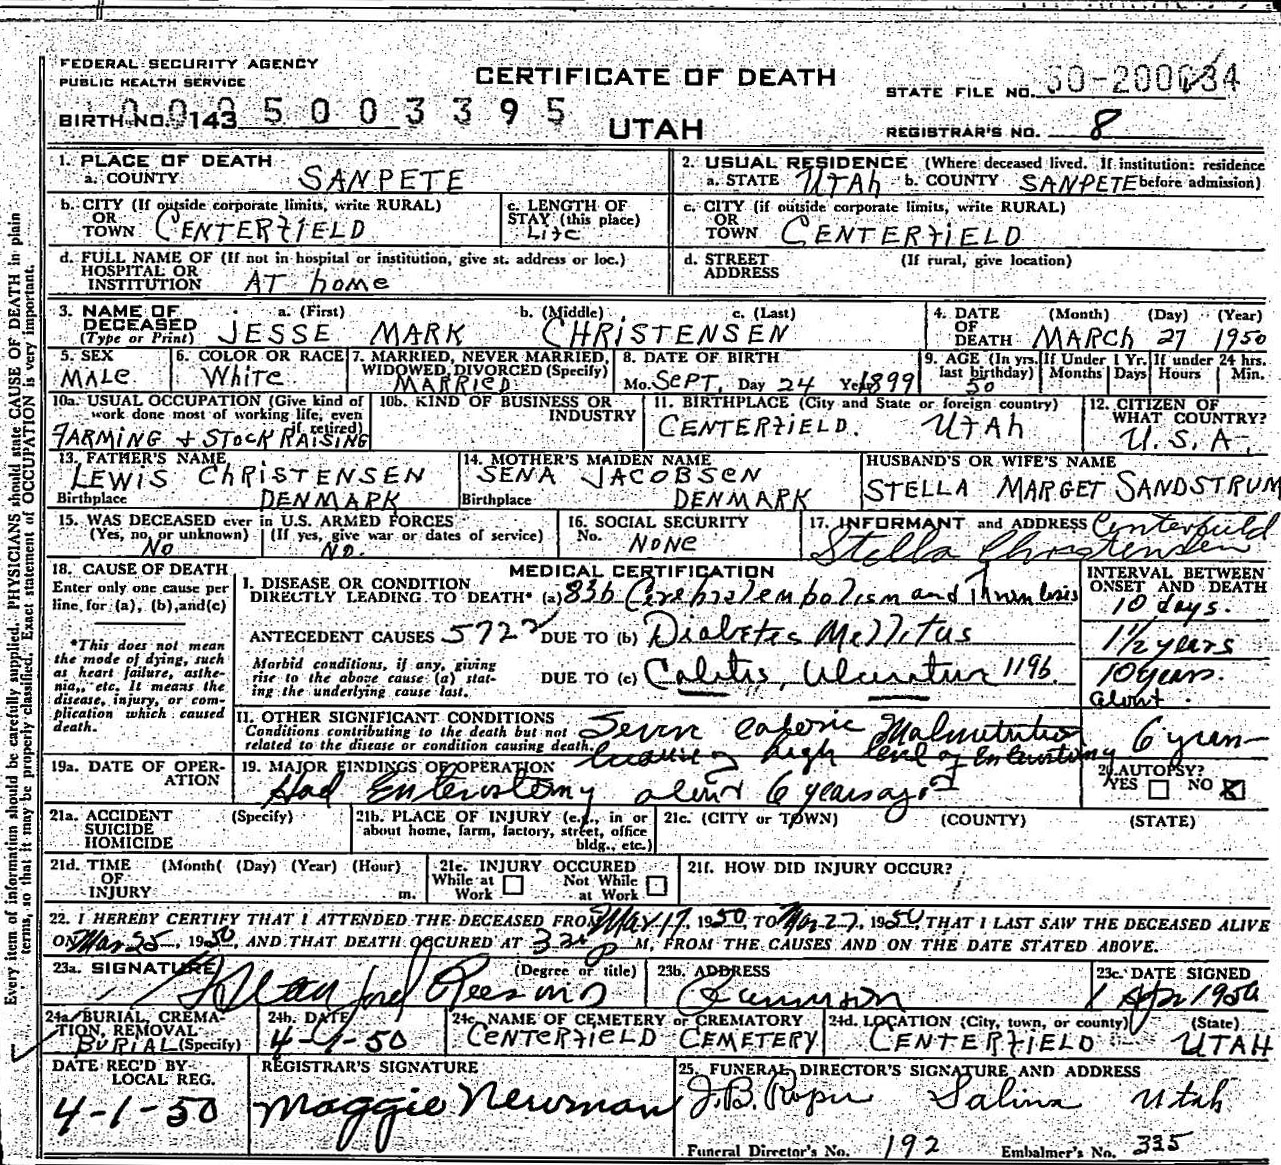 FEDERAL SECURITY AGENCY
PUBLIC HEALTH SERVICE
CERTIFICATE OF DEATH
STATE FILE NO.
BIRTH NO. 143 5003395
UTAH
REGISTRAR'S NO. 8
1. PLACE OF DEATH
a. COUNTY SANPETE
2. USUAL RESIDENCE (Where deceased lived. If institution: residence
a. STATE UTAh b. COUNTY SANPETE before admission)
b. CITY (If outside corporate limits, write RURAL)
OR
TOWN CENTERfIELD
c. LENGTH OF
STAY (this place)
Life
c. CITY (if outside corporate limits, write RURAL)
OR
TOWN CENTERfIELD
d. FULL NAME OF (If not in hospital or institution, give st. address or loc.)
HOSPITAL OR
INSTITUTION AT home
d. STREET (If rural, give location)
ADDRESS
3. NAME OF a. (First) b. (Middle) c. (Last)
DECEASED
(Type or Print) JESSE MARK CHRISTENSEN
4. DATE (Month) (Day) (Year)
OF
DEATH MARCH 27 1950
5. SEX
MALe
6. COLOR OR RACE
White
7. MARRIED, NEVER MARRIED,
WIDOWED, DIVORCED (Specify)
MARRIED
8. DATE OF BIRTH
Mo. SEPT. Day 24 Year 1899
9. AGE (In yrs. last birthday)
50
If Under 1 Yr.
Months Days
If under 24 hrs.
Hours Min.
10a. USUAL OCCUPATION (Give kind of
work done most of working life, even
if retired)
FARMING + STOCK RAISING
10b. KIND OF BUSINESS OR
INDUSTRY
11. BIRTHPLACE (City and State or foreign country)
CENTERfIELD. UTAh
12. CITIZEN OF
WHAT COUNTRY?
U.S.A-
13. FATHER'S NAME
LEWIS ChRISTENSEN
Birthplace DENMARK
14. MOTHER'S MAIDEN NAME
SENA JACOBSEN
Birthplace DENMARK
HUSBAND'S OR WIFE'S NAME
STELLA MARGET SANDSTRUM
15. WAS DECEASED ever in U.S. ARMED FORCES
(Yes, no, or unknown) (If yes, give war or dates of service)
NO NO.
16. SOCIAL SECURITY
No. NONE
17. INFORMANT and ADDRESS Centerfield
Stella Christensen
18. CAUSE OF DEATH
Enter only one cause per
line for (a), (b), and (c)
*This does not mean
the mode of dying, such
as heart failure, asthe-
nia, etc. It means the
disease, injury, or com-
plication which caused
death.
MEDICAL CERTIFICATION
I. DISEASE OR CONDITION
DIRECTLY LEADING TO DEATH* (a) 83b Cerebral embolism and Thrombosis
ANTECEDENT CAUSES 5722 DUE TO (b) Diabetes Mellitus
Morbid conditions, if any, giving
rise to the above cause (a) stat-
ing the underlying cause last.
DUE TO (c) Colitis, Ulcerative 119b
INTERVAL BETWEEN
ONSET AND DEATH
10 days.
1½ years
10 years.
about.
11. OTHER SIGNIFICANT CONDITIONS
Conditions contributing to the death but not
related to the disease or condition causing death.
Severe caloric Malnutrition
because of high level of Enterostomy
6 years
19a. DATE OF OPER-
ATION
19. MAJOR FINDINGS OF OPERATION
Had Enterostomy about 6 years ago
20. AUTOPSY?
YES NO X
21a. ACCIDENT (Specify)
SUICIDE
HOMICIDE
21b. PLACE OF INJURY (e.g., in or
about home, farm, factory, street, office
bldg., etc.)
21c. (CITY or TOWN) (COUNTY) (STATE)
21d. TIME (Month) (Day) (Year) (Hour)
OF
INJURY m.
21e. INJURY OCCURED
While at Work Not While at Work
21f. HOW DID INJURY OCCUR?
22. I HEREBY CERTIFY THAT I ATTENDED THE DECEASED FROM Mar 17, 1950, TO Mar 27, 1950, THAT I LAST SAW THE DECEASED ALIVE
ON Mar 25, 1950, AND THAT DEATH OCCURED AT P M, FROM THE CAUSES AND ON THE DATE STATED ABOVE.
23a. SIGNATURE (Degree or title)
23b. ADDRESS
Gunnison
23c. DATE SIGNED
1 Apr 1950
24a. BURIAL, CREMA-
TION, REMOVAL
BURIAL (Specify)
24b. DATE
4-1-50
24c. NAME OF CEMETERY or CREMATORY
CENTERfIELD CEMETERY
24d. LOCATION (City, town, or county) (State)
CENTERfIELD UTAH
DATE REC'D BY
LOCAL REG.
4-1-50
REGISTRAR'S SIGNATURE
Maggie Newman
25. FUNERAL DIRECTOR'S SIGNATURE AND ADDRESS
J.B. Roper Salina Utah
Funeral Director's No. 192 Embalmer's No. 335
Every item of information should be carefully supplied. PHYSICIANS should state CAUSE OF DEATH in plain
terms, so that it may be properly classified. Exact statement of OCCUPATION is very important.